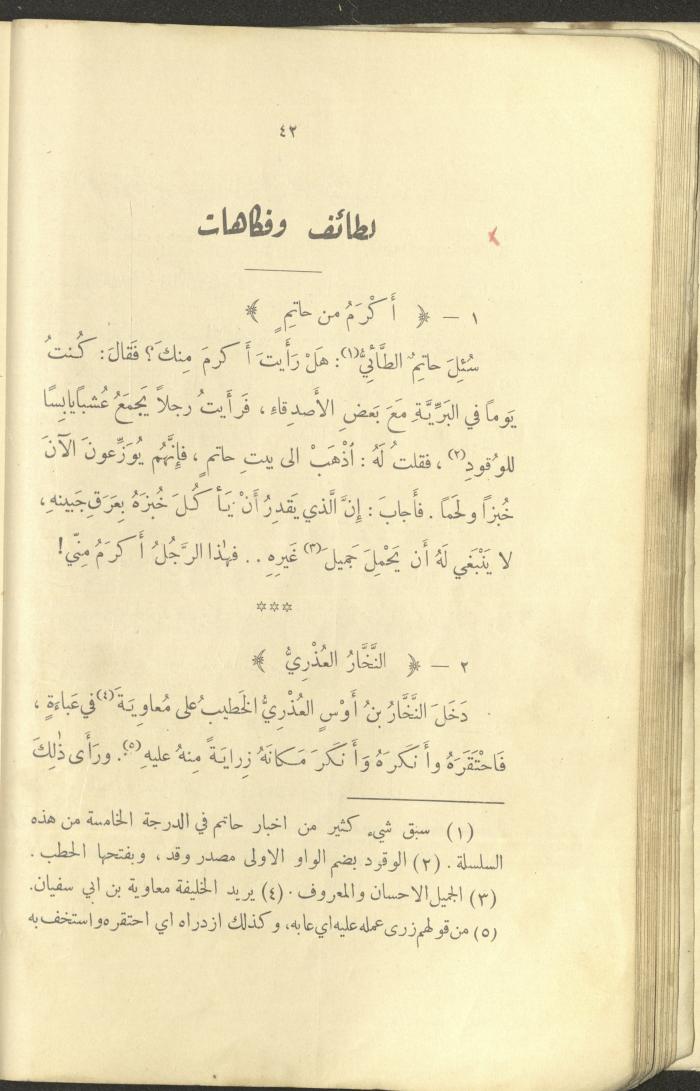 ٤٢
لطائف وفكاهات
١ — ﴿ أَكْرَمُ من حاتمٍ ﴾
سُئِلَ حاتمٌ الطَّائِيُّ(١): هَلْ رَأَيتَ أَكرمَ مِنكَ؟ فَقالَ: كُنتُ
يَوماً في البَرِّيَّةِ مَعَ بَعضِ الأَصدِقاءِ ، فَرَأَيتُ رجلاً يَجمَعُ عُشباً يابِسًا
للوُقودِ(٢) ، فقلتُ لَهُ : اَذْهَبْ الى بيتِ حاتمٍ ، فإِنَّهُم يُوَزِّعونَ الآنَ
خُبزاً ولَحمَاً . فأَجابَ : إِنَّ الَّذي يَقدِرُ أَنْ يَأكُلَ خُبزَهُ بِعَرَقِ جَبينهِ ،
لا يَنْبَغي لَهُ أَن يَحْمِلَ جَميلَ(٣) غَيرِهِ . . فهٰذا الرَّجُلُ أَكرَمُ مِنّي !
***
٢ — ﴿ النَّخَّارُ العُذْرِيُّ ﴾
دَخَلَ النَّخَّارُ بنُ أَوْسٍ العُذْرِيُّ الخَطيبُ على مُعاوِيَةَ(٤) في عَباءَةٍ ،
فَاحْتَقَرَهُ وأَنكَرَهُ وَأَنكَرَ مَكانَهُ زِرايَةً مِنهُ عليهِ(٥). ورَأَى ذٰلِكَ
(١) سبق شيء كثير من اخبار حاتم في الدرجة الخامسة من هذه
السلسلة . (٢) الوقود بضم الواو الاولى مصدر وقد ، وبفتحها الحطب .
(٣) الجميل الاحسان والمعروف . (٤) يريد الخليفة معاوية بن ابي سفيان.
(٥) من قولهم زرى عمله عليه اي عابه، وكذلك ازدراه اي احتقره واستخف به